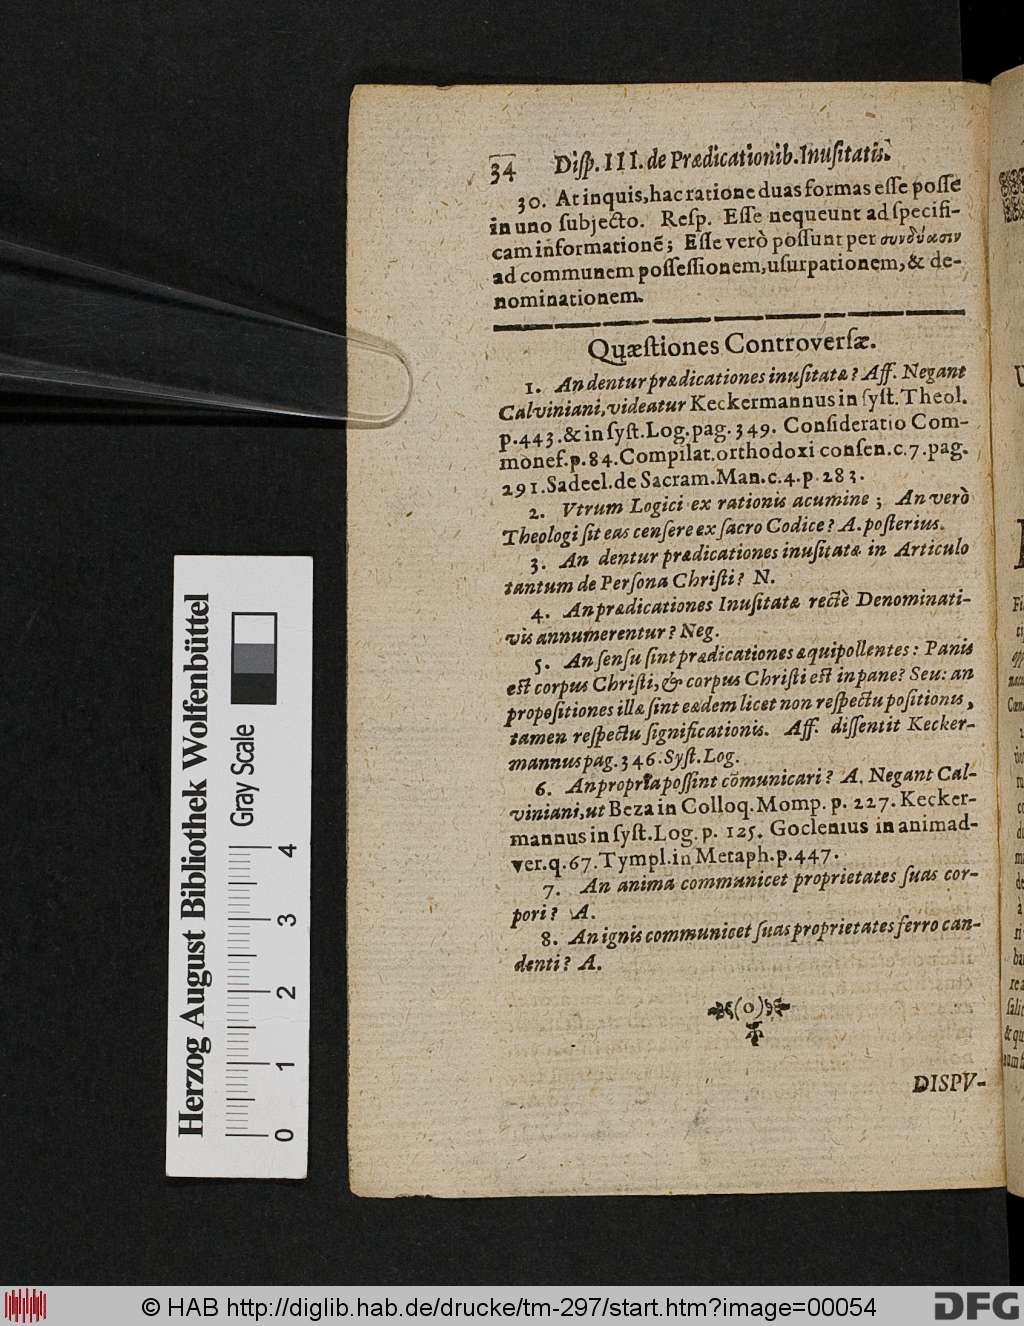 34 Diſp. III. de Prædicationib. Inuſitatis.
30. At inquis, hac ratione duas formas eſſe poſſe
in uno ſubjecto. Reſp. Eſſe nequeunt ad ſpecifi-
cam informationē; Eſſe verò poſſunt per συνδύασιν
ad communem poſſeſſionem, uſurpationem, & de-
nominationem.
Quæſtiones Controverſæ.
1. An dentur prædicationes inuſitatæ? Aff. Negant
Calviniani, videatur Keckermannus in ſyſt. Theol.
p. 443. & in ſyſt. Log. pag. 349. Conſideratio Com-
monef. p. 84. Compilat. orthodoxi conſen. c. 7. pag.
291. Sadeel. de Sacram. Man. c. 4. p. 283.
2. Vtrum Logici ex rationis acumine; An verò
Theologi ſit eas cenſere ex ſacro Codice? A. poſterius.
3. An dentur prædicationes inuſitatæ in Articulo
tantum de Perſona Chriſti? N.
4. An prædicationes Inuſitatæ rectè Denominati-
vis annumerentur? Neg.
5. An ſenſu ſint prædicationes æquipollentes: Panis
eſt corpus Chriſti, & corpus Chriſti eſt in pane? Seu: an
propoſitiones illæ ſint eædem licet non reſpectu poſitionis,
tamen reſpectu ſignificationis. Aff. diſſentit Kecker-
mannus pag. 346. Syſt. Log.
6. An propria poſſint cōmunicari? A. Negant Cal-
viniani, ut Beza in Colloq. Momp. p. 227. Kecker-
mannus in ſyſt. Log. p. 125. Goclenius in animad-
ver. q. 67. Tympl. in Metaph. p. 447.
7. An anima communicet proprietates ſuas cor-
pori? A.
8. An ignis communicet ſuas proprietates ferro can-
denti? A.
(o)
DISPV-
Herzog August Bibliothek Wolfenbüttel
Gray Scale
0 1 2 3 4
© HAB http://diglib.hab.de/drucke/tm-297/start.htm?image=00054
DFG